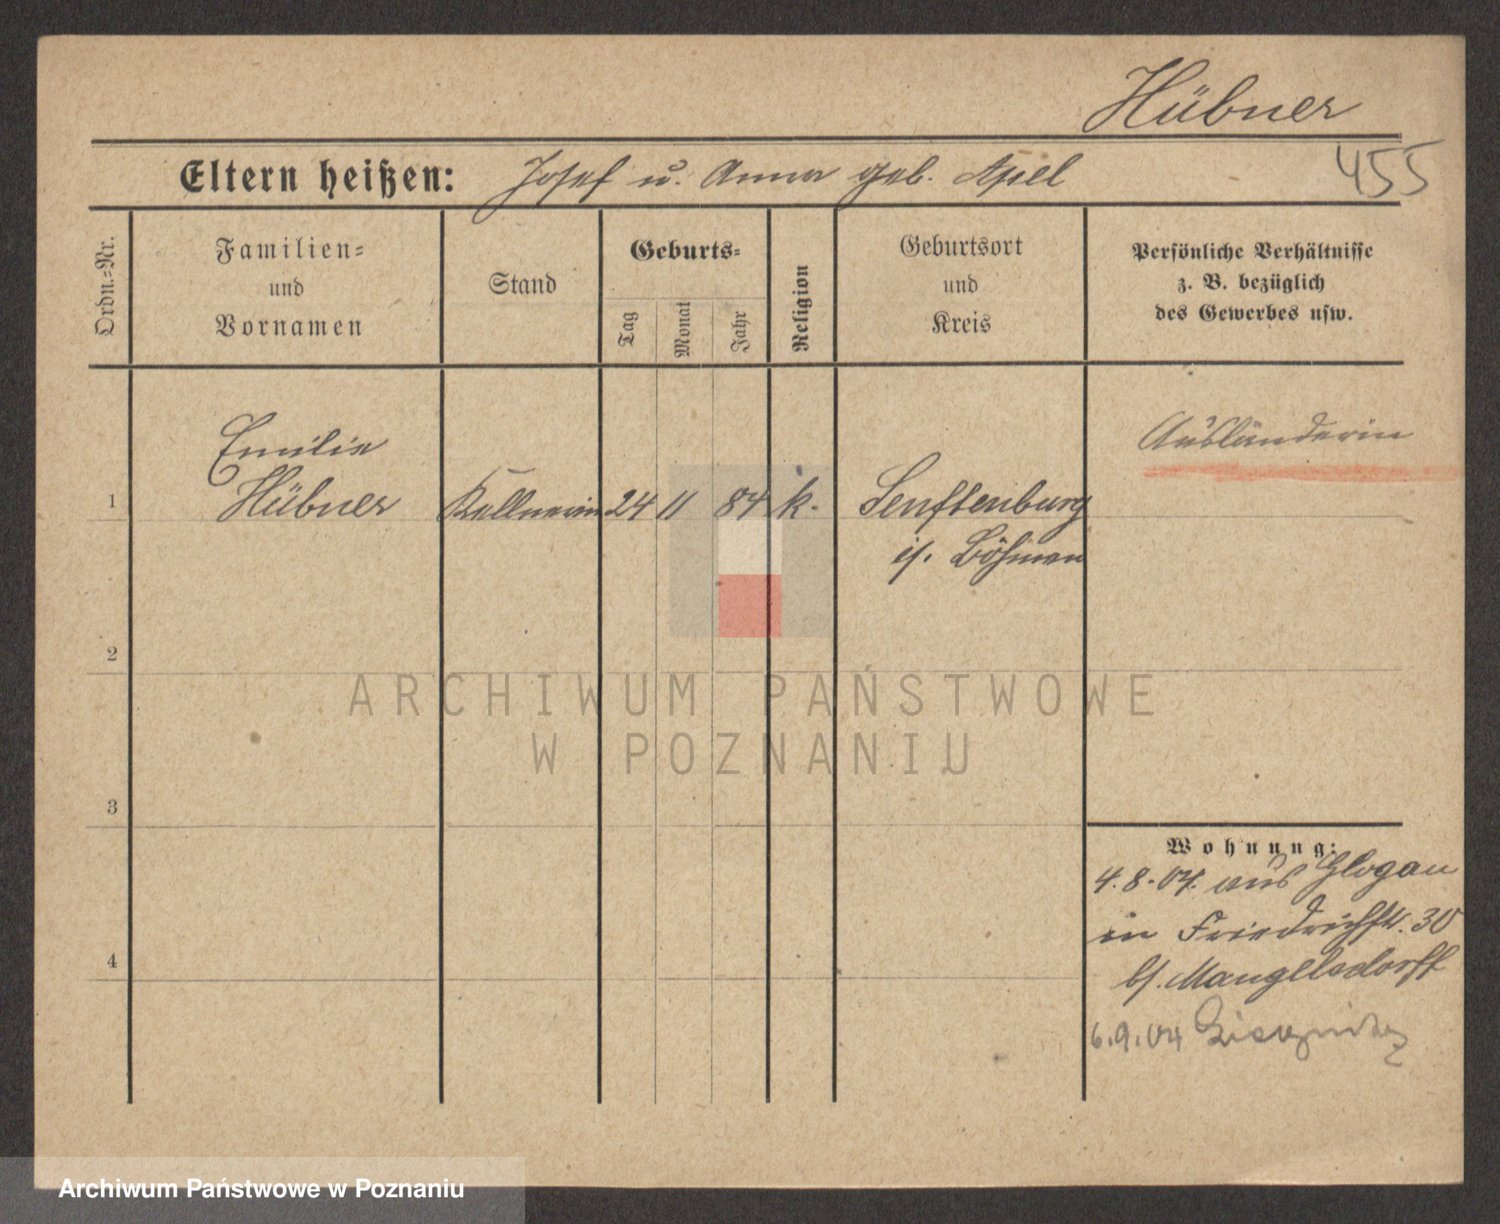 Hübner
455
Eltern heißen: Josef u. Anna geb. Apel
Ordn.-Nr.
Familien-
und
Vornamen
Stand
Geburts-
Tag
Monat
Jahr
Religion
Geburtsort
und
Kreis
Persönliche Verhältnisse
z. B. bezüglich
des Gewerbes usw.
Ausländerin
Emilie
1 Hübner Kellnerin 24 11 84 k. Senftenburg
i/. Böhmen
2
ARCHIWUM PAŃSTWOWE
W POZNANIU
3
Wohnung:
4.8.04. aus Glogau
in Friedrichstr. 30
b/. Mangelsdorff
4
6.9.04
Archiwum Państwowe w Poznaniu